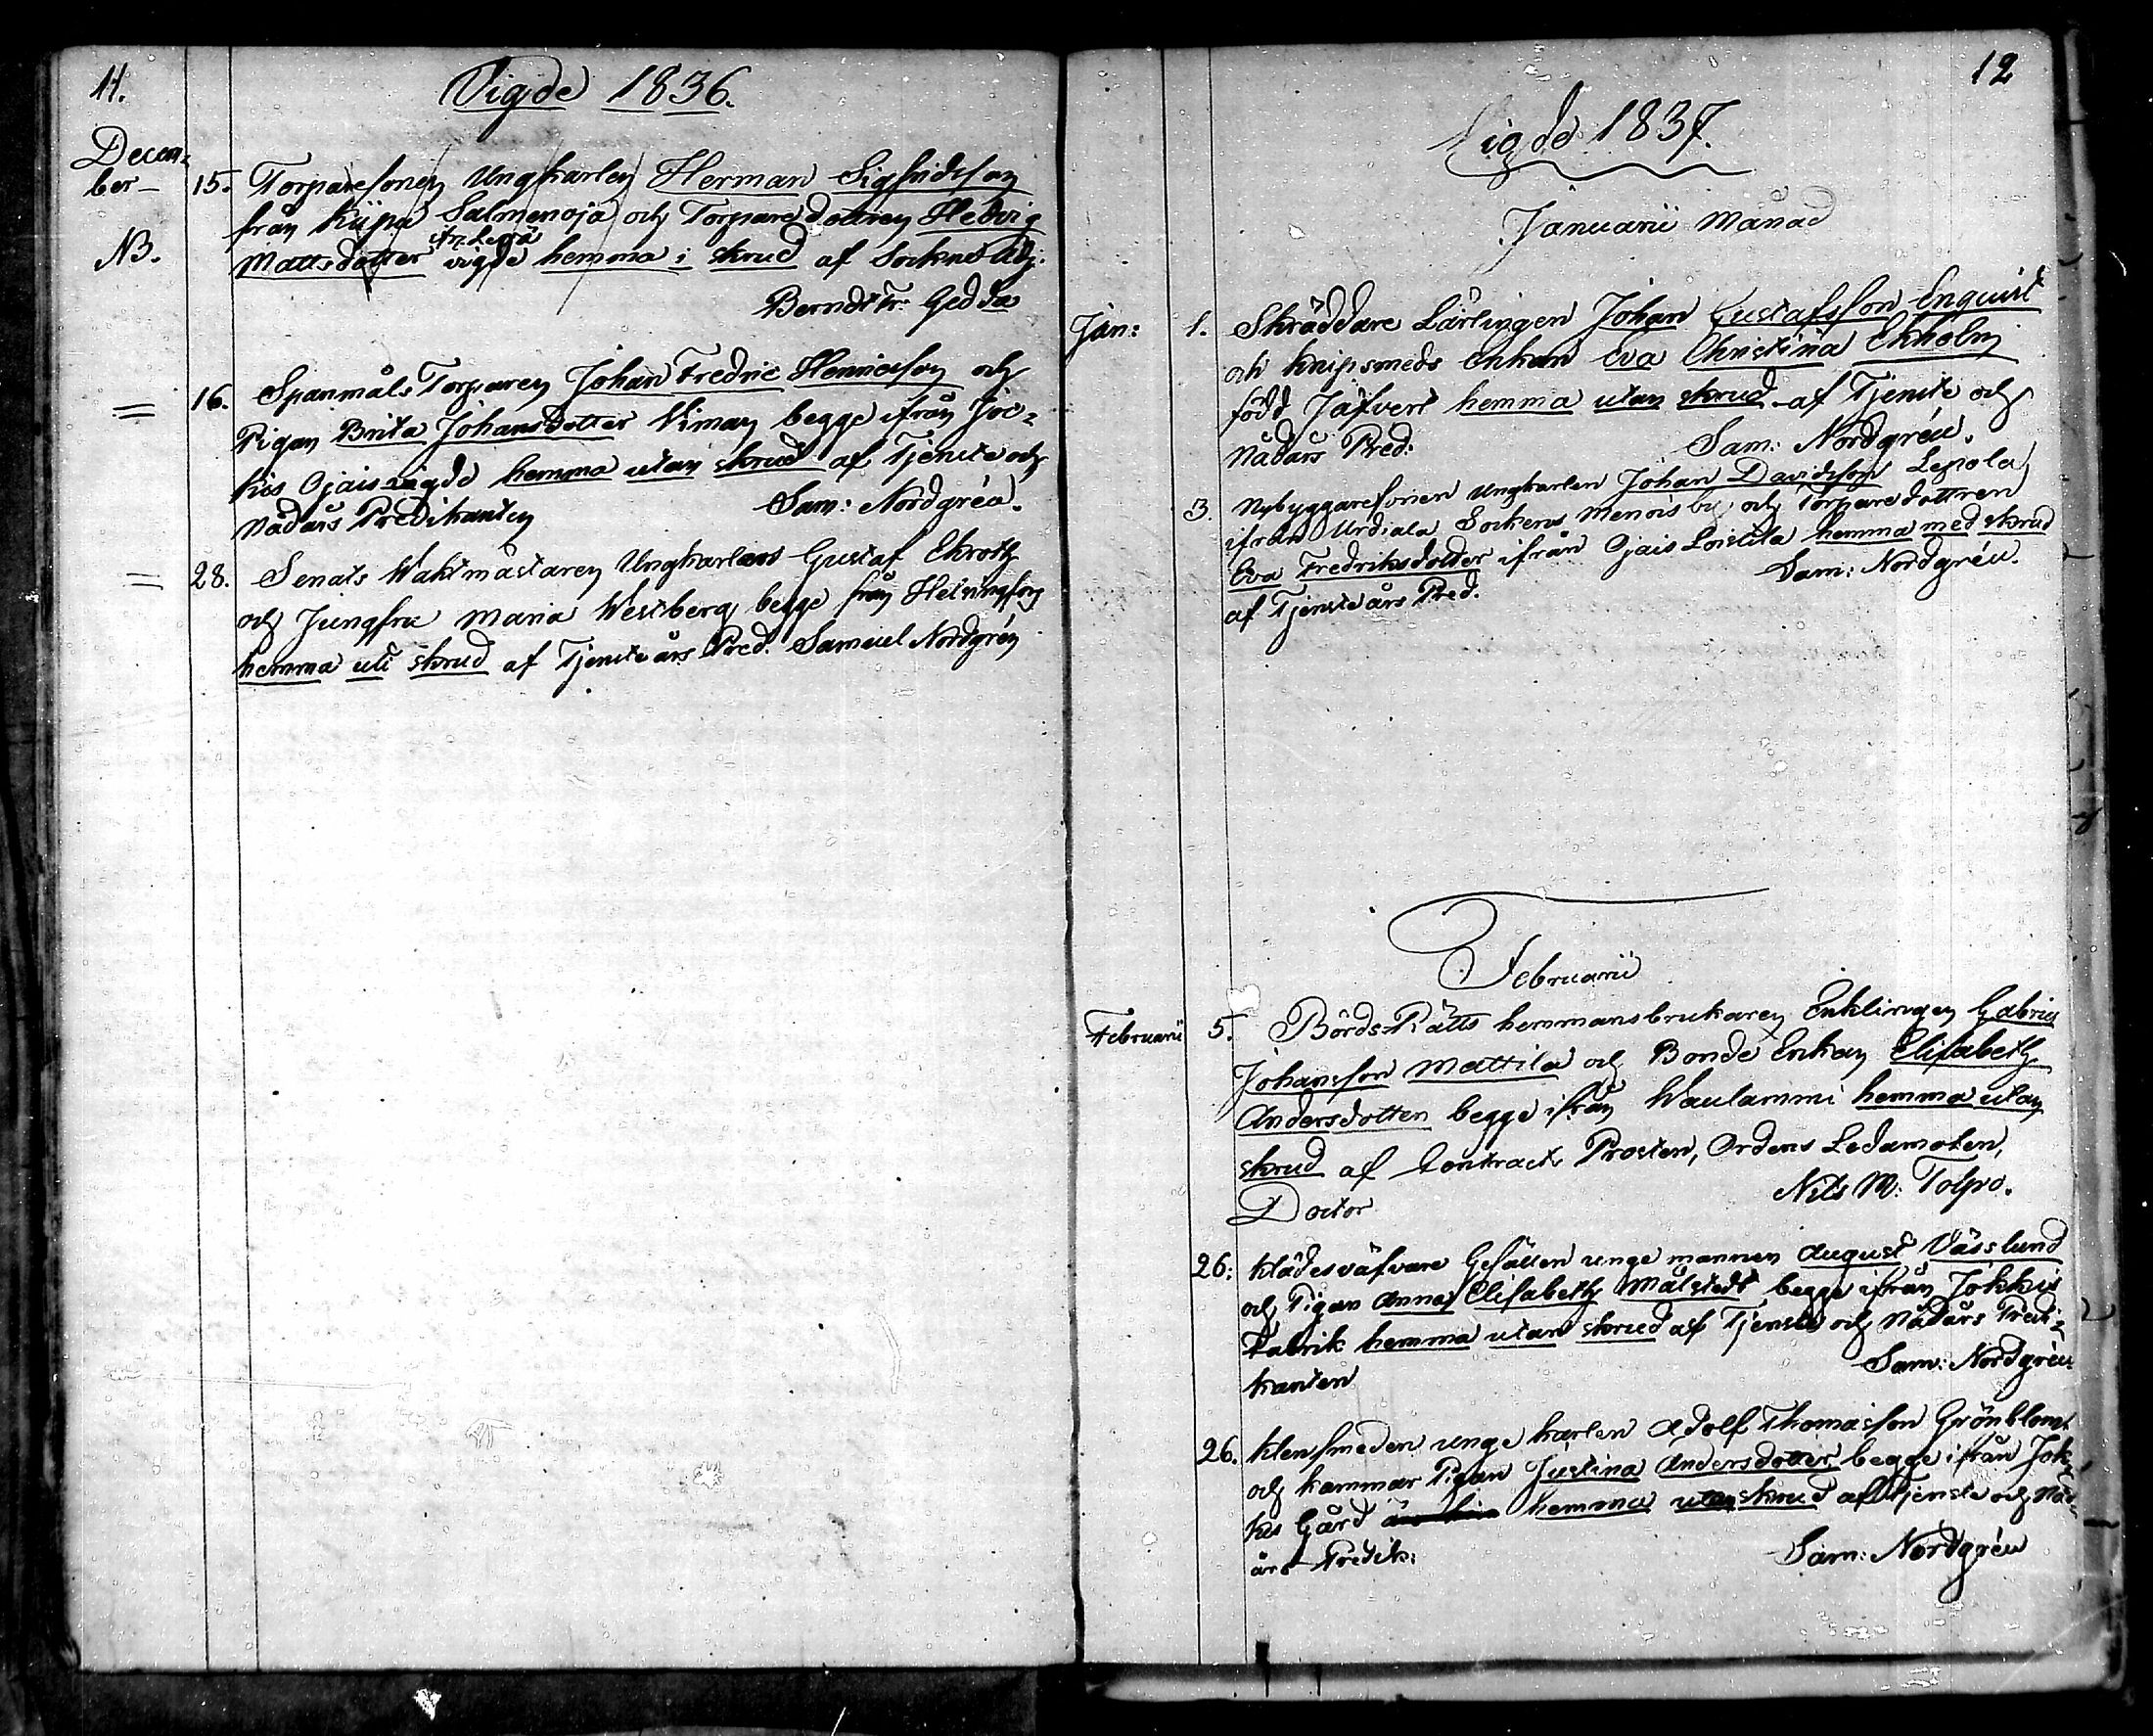 11.
Vigde 1836.
Decem-
ber-
15. Torparesonen Ungkarlen Herman Sigfridsson
från Kiipu Salmenoja och Torparedottren Hedvig
NB.
Mattsdotter vigde hemma i skrud af Sockne Adj.
Berndt Fr: Gedda
16. Spanmåls Torparen Johan Fredric Henricsson och
Pigan Brita Johansdotter Viman begge ifrån Joc-
kis Ojais vigde hemma utan skrud af Tjenste och
Nådårs Predikanten
Sam: Nordgrén.
28. Senats Waktmästaren Ungkarlen Gustaf Ekroth
och Jungfru Maria Westberg begge från Helsingfors
hemma uti skrud af Tjenste års Pred. Samuel Nordgrén
12
Vigde 1837.
Januarii Månad
Jan: 1. Skräddare Lärlingen Johan Gustafsson Enqvist
och Knipsmeds Enkan Eva Christina Ekholm
född Jäfvert hemma utan skrud af Tjenste och
Nådårs Pred:
Sam: Nordgrén.
3. Nybyggaresonen Ungkarlen Johan Davidsson Lepola
ifrån Urdiala Sockens Menois by och Torparedottren
Eva Fredriksdotter ifrån Ojais Loistila hemma med skrud
af Tjenste års Pred.
Sam: Nordgrén.
Februarii
Februarii 5. Börds-Rätts hemmansbrukaren Enklingen Gabriel
Johansson Mattila och Bonde Enkan Elisabeth
Andersdotter begge ifrån Waulammi hemma utan
skrud af Contracts Prosten, Ordens Ledamoten,
Doctor
Nils M: Tolpo.
26. Klädesväfvare Gesällen unge mannen August Vässlund
och Pigan Anna Elisabeth Målstedt begge ifrån Jokkis
Fabrik hemma utan skrud af Tjenste och Nådårs Predi-
kanten
Sam: Nordgrén
26. Klensmeden unge karlen Adolf Thomasson Grönblom
och kammar Pigan Justina Andersdotter begge ifrån Jok-
kis Gård hemma utan skrud af Tjenste och Nåd-
års Predik:
Sam: Nordgrén